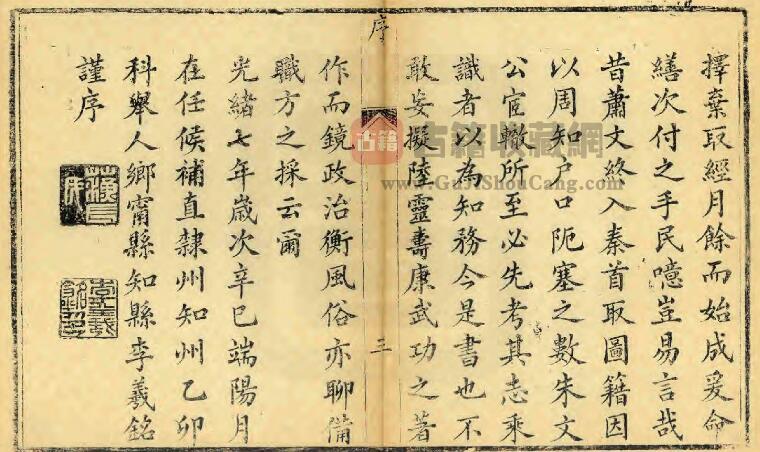 擇棄取經月餘而始成爰命
繕次付之手民噫豈易言哉
昔蕭文終入秦首取圖籍因
以周知户口阨塞之數朱文
公宦轍所至必先考其志乘
識者以為知務今是書也不
敢妄擬陸靈壽康武功之著
序
三
作而鏡政治衡風俗亦聊備
職方之採云爾
光緒七年歲次辛巳端陽月
在任候補直隸州知州乙卯
科舉人鄉甯縣知縣李羲銘
謹序
李羲銘印
古籍
古籍收藏網
www.GuJiShouCang.com